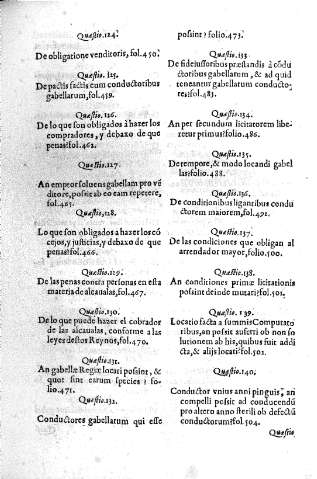 Quæstio.124.
De obligatione venditoris, fol.450.
Quæstio.125.
De pactis factis cum conductoribus
gabellarum, fol.459.
Quæstio.126.
De lo que son obligados à hazer los
compradores, y debaxo de que
penas: fol.462.
Quæstio.127.
An emptor soluens gabellam pro vē
ditore, possit ab eo eam repetere,
fol.465.
Quæstio.128.
Lo que son obligados à hazer los cō
cejos, y justicias, y debaxo de que
penas: fol.466.
Quæstio.129.
De las penas contra personas en esta
materia de alcaualas, fol.467.
Quæstio.130.
De lo que puede hazer el cobrador
de las alcaualas, conforme a las
leyes destos Reynos, fol.470.
Quæstio.131.
An gabellæ Regiæ locari possint, &
quot sint earum species? fo-
lio.471.
Quæstio.132.
Conductores gabellarum qui esse
possint? folio.473.
Quæstio.133.
De fideiussoribus præstandis à cōdu
ctoribus gabellarum, & ad quid
teneantur gabellarum conducto-
res: fol.483.
Quæstio.134.
An per secundum licitatorem libe-
retur primus: folio.486.
Quæstio.135.
De tempore, & modo locandi gabel
las: folio.488.
Quæstio.136.
De conditionibus ligantibus condu
ctorem maiorem, fol.491.
Quæstio.137.
De las condiciones que obligan al
arrendador mayor, folio.500.
Quæstio.138.
An conditiones primæ licitationis
possint deinde mutari: fol.501.
Quæstio.139.
Locatio facta a summis Computato
ribus, an possit auferri ob non so
lutionem ab his, quibus fuit addi
cta, & alijs locari: fol.502.
Quæstio.140.
Conductor vnius anni pinguis, an
compelli possit ad conducendū
pro altero anno sterili ob defectū
conductorum: fol.504.
Quæstio